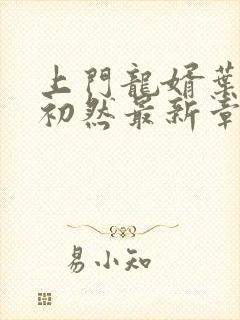 上門龍婿葉
初然最新章
易小知